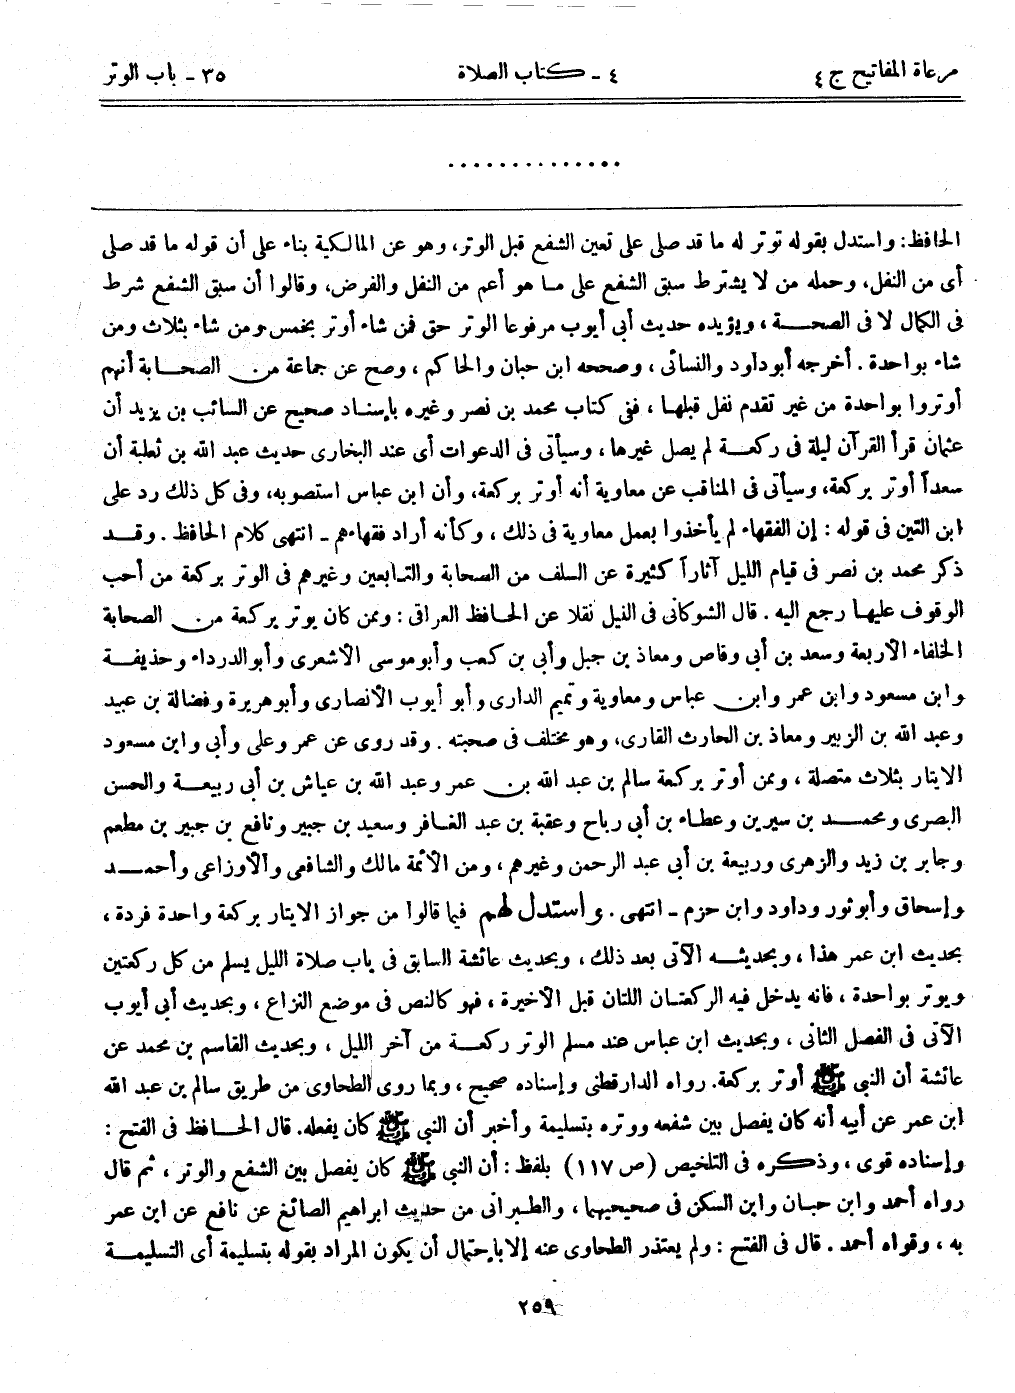 مرعاة المفاتيح ج ٤
٤ - كتاب الصلاة
٣٥ - باب الوتر
..............
الحافظ: واستدل بقوله توتر له ما قد صلى على تعين الشفع قبل الوتر، وهو عن المالكية بناء على أن قوله ما قد صلى
أى من النفل، وحمله من لا يشترط سبق الشفع على ما هو أعم من النفل والفرض، وقالوا أن سبق الشفع شرط
فى الكمال لا فى الصحة ، ويؤيده حديث أبى أيوب مرفوعا الوتر حق فمن شاء أوتر بخمس ومن شاء بثلاث ومن
شاء بواحدة . أخرجه أبوداود والنسائى ، وصححه ابن حبان والحاكم ، وصح عن جماعة من الصحابة أنهم
أوتروا بواحدة من غير تقدم نفل قبلها ، ففى كتاب محمد بن نصر وغيره بإسناد صحيح عن السائب بن يزيد أن
عثمان قرأ القرآن ليلة فى ركعة لم يصل غيرها ، وسيأتى فى الدعوات أى عند البخارى حديث عبد الله بن ثعلبة أن
سعداً أوتر بركعة، وسيأتى فى المناقب عن معاوية أنه أوتر بركعة، وأن ابن عباس استصوبه، وفى كل ذلك رد على
ابن التين فى قوله : إن الفقهاء لم يأخذوا بعمل معاوية فى ذلك ، وكأنه أراد فقهاءهم - انتهى كلام الحافظ . وقد
ذكر محمد بن نصر فى قيام الليل آثاراً كثيرة عن السلف من الصحابة والتابعين وغيرهم فى الوتر بركعة من أحب
الوقوف عليها رجع اليه . قال الشوكانى فى النيل نقلا عن الحافظ العراقى : وممن كان يوتر بركعة من الصحابة
الخلفاء الأربعة وسعد بن أبى وقاص ومعاذ بن جبل وأبى بن كعب وأبوموسى الأشعرى وأبوالدرداء وحذيفة
وابن مسعود وابن عمر وابن عباس ومعاوية وتميم الدارى وأبو أيوب الأنصارى وأبوهريرة وفضالة بن عبيد
وعبد الله بن الزبير ومعاذ بن الحارث القارى، وهو مختلف فى صحبته . وقد روى عن عمر وعلى وأبى وابن مسعود
الايتار بثلاث متصلة ، وممن أوتر بركعة سالم بن عبد الله بن عمر وعبد الله بن عياش بن أبى ربيعة والحسن
البصرى ومحمد بن سيرين وعطاء بن أبى رباح وعقبة بن عبد الغافر وسعيد بن جبير ونافع بن جبير بن مطعم
وجابر بن زيد والزهرى وربيعة بن أبى عبد الرحمن وغيرهم ، ومن الأئمة مالك والشافعى والأوزاعى وأحمد
وإسحاق وأبوثور وداود وابن حزم - انتهى . واستدل لهم فيما قالوا من جواز الايتار بركعة واحدة فردة ،
بحديث ابن عمر هذا ، وبحديثه الآتى بعد ذلك ، وبحديث عائشة السابق فى باب صلاة الليل يسلم من كل ركعتين
ويوتر بواحدة ، فانه يدخل فيه الركعتان اللتان قبل الأخيرة ، فهو كالنص فى موضع النزاع ، وبحديث أبى أيوب
الآتى فى الفصل الثانى ، وبحديث ابن عباس عند مسلم الوتر ركعة من آخر الليل ، وبحديث القاسم بن محمد عن
عائشة أن النبى ﷺ أوتر بركعة. رواه الدارقطنى وإسناده صحيح ، وبما روى الطحاوى من طريق سالم بن عبد الله
ابن عمر عن أبيه أنه كان يفصل بين شفعه ووتره بتسليمة وأخبر أن النبى ﷺ كان يفعله. قال الحافظ فى الفتح :
وإسناده قوى ، وذكره فى التلخيص (ص ١١٧) بلفظ : أن النبى ﷺ كان يفصل بين الشفع والوتر ، ثم قال
رواه أحمد وابن حبان وابن السكن فى صحيحيهما ، والطبرانى من حديث ابراهيم الصائغ عن نافع عن ابن عمر
به ، وقواه أحمد . قال فى الفتح : ولم يعتذر الطحاوى عنه إلا باحتمال أن يكون المراد بقوله بتسليمة أى التسليمة
٢٥٩